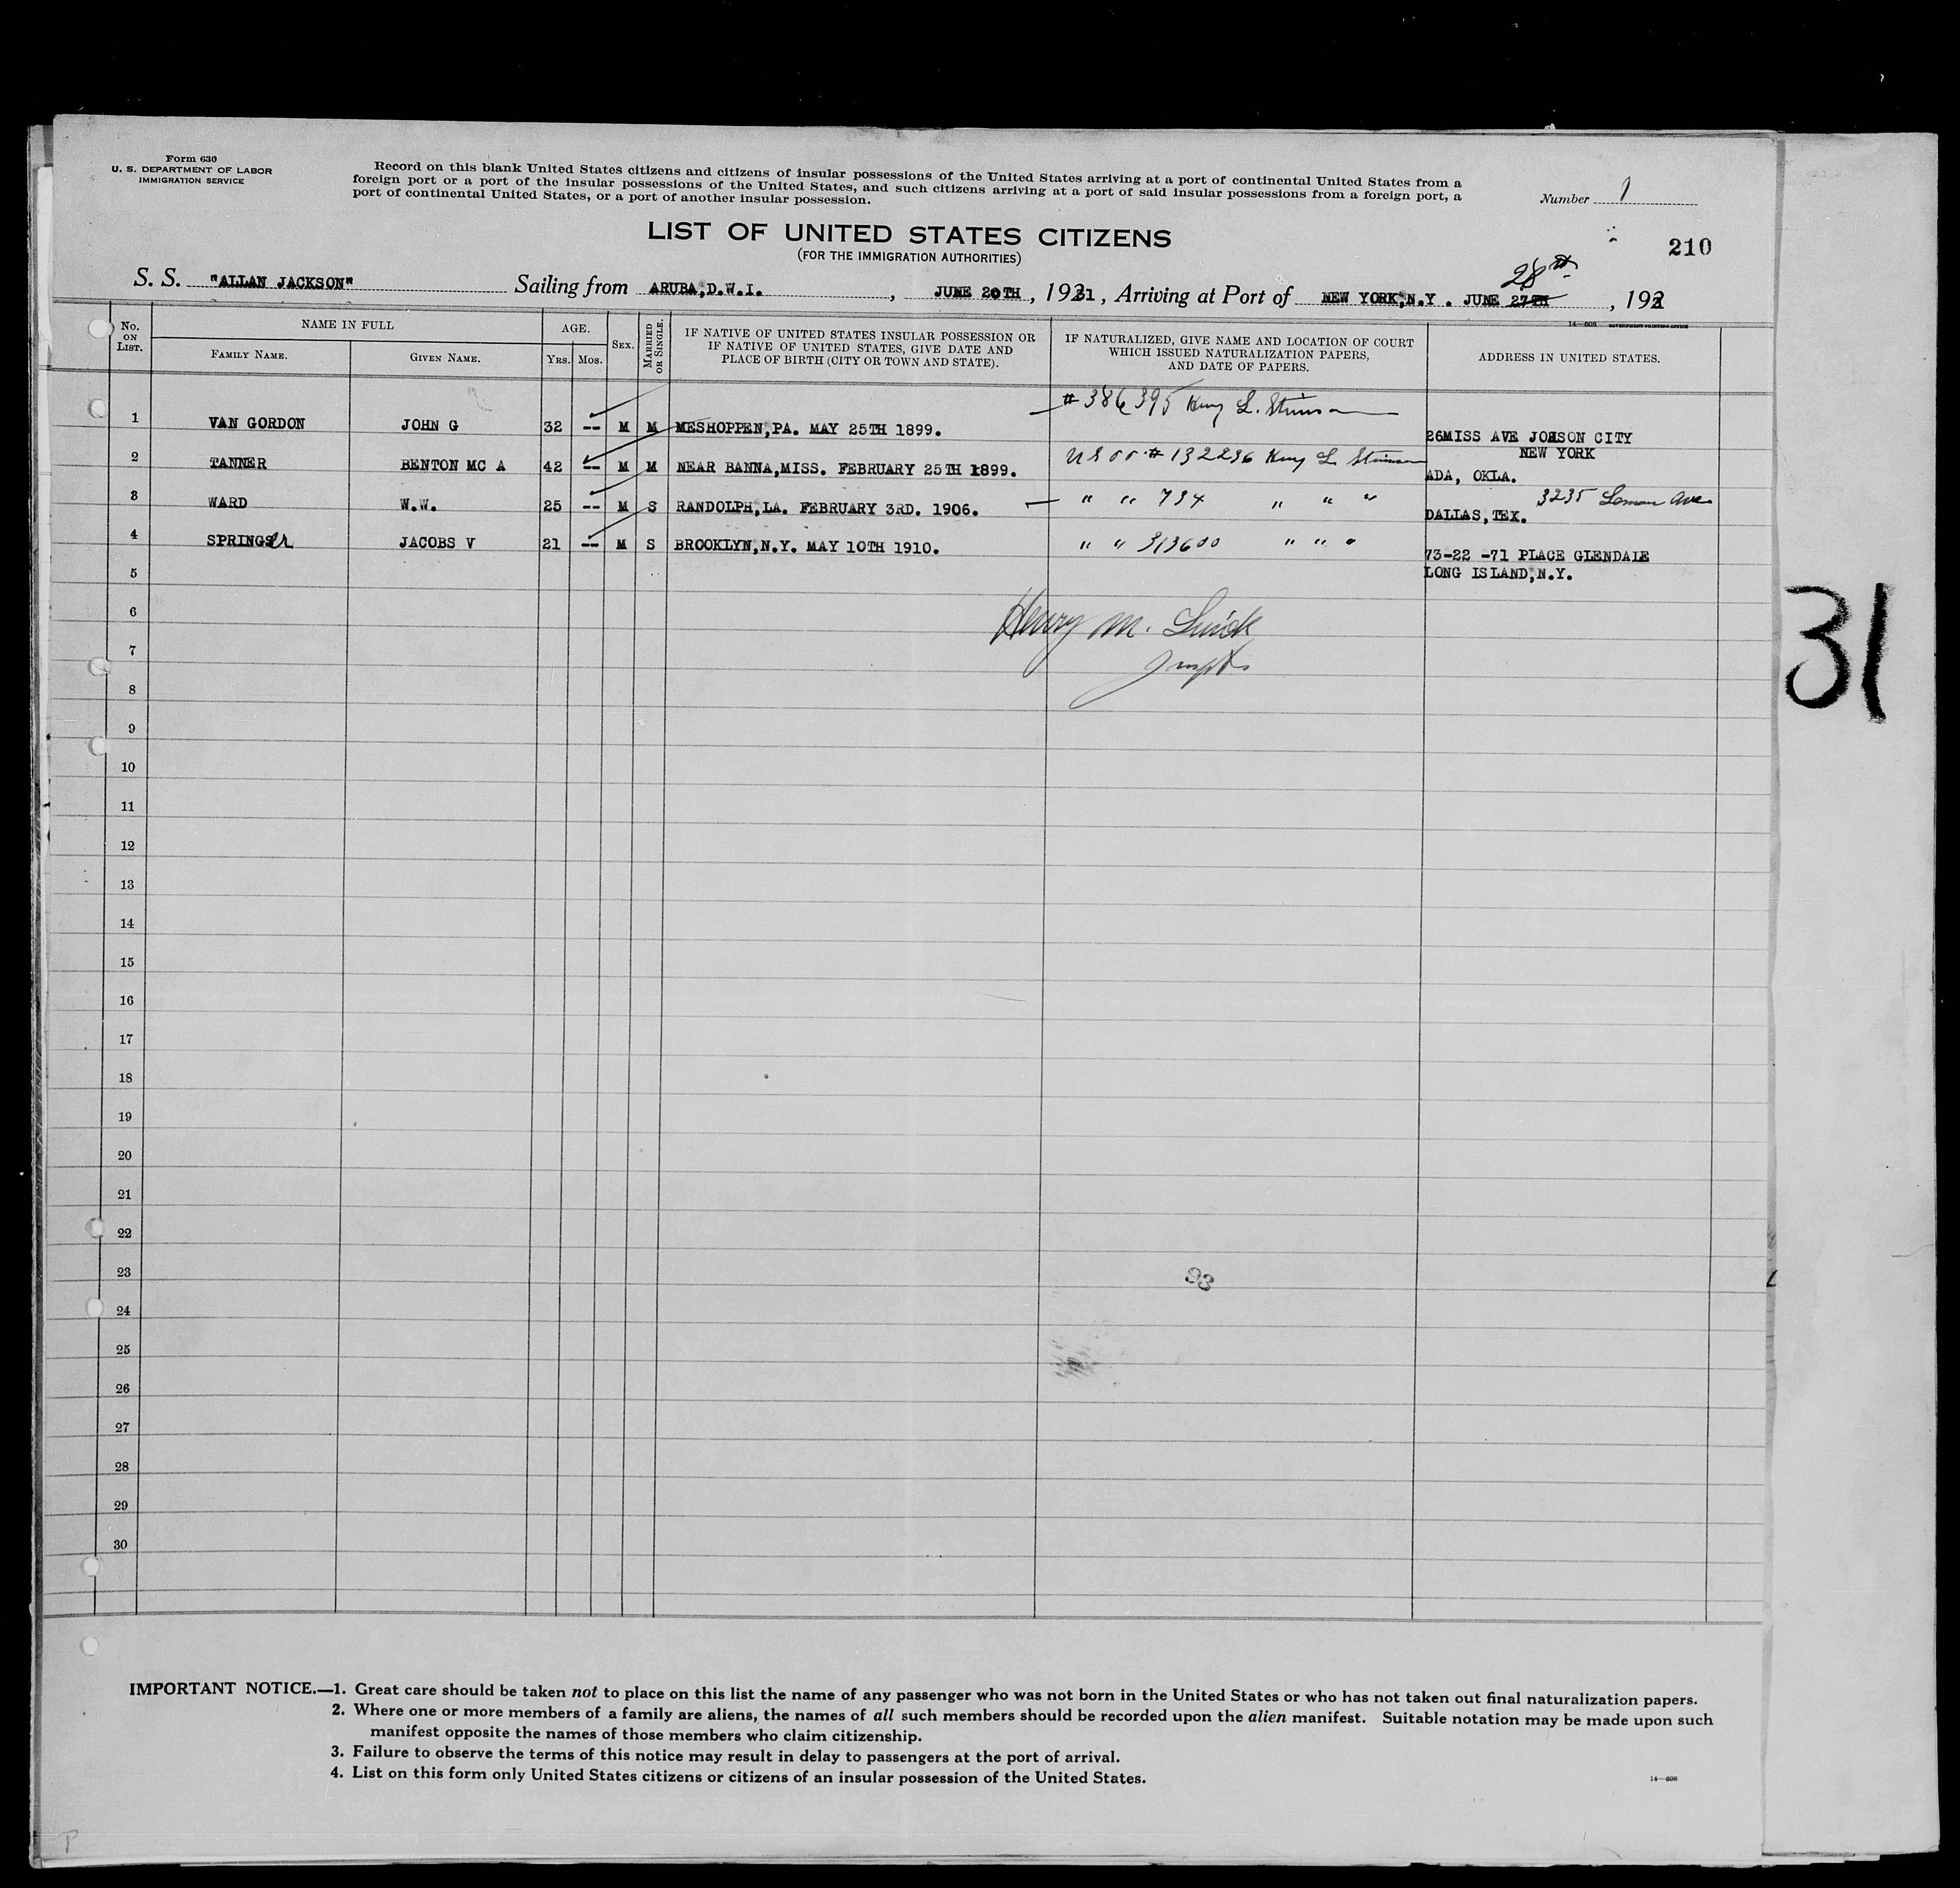 Form 630
U. S. DEPARTMENT OF LABOR
IMMIGRATION SERVICE
Record on this blank United States citizens and citizens of insular possessions of the United States arriving at a port of continental United States from a
foreign port or a port of the insular possessions of the United States, and such citizens arriving at a port of said insular possessions from a foreign port, a
port of continental United States, or a port of another insular possession.
Number 1
LIST OF UNITED STATES CITIZENS
(FOR THE IMMIGRATION AUTHORITIES)
210
28th
S. S. "ALLAN JACKSON" Sailing from ARUBA,D.W.I. , JUNE 20TH , 1931 , Arriving at Port of NEW YORK,N.Y . JUNE 27TH , 192
14—608 GOVERNMENT PRINTING OFFICE
No. ON LIST. NAME IN FULL AGE. SEX. MARRIED OR SINGLE. IF NATIVE OF UNITED STATES INSULAR POSSESSION OR IF NATIVE OF UNITED STATES, GIVE DATE AND PLACE OF BIRTH (CITY OR TOWN AND STATE). IF NATURALIZED, GIVE NAME AND LOCATION OF COURT WHICH ISSUED NATURALIZATION PAPERS, AND DATE OF PAPERS. ADDRESS IN UNITED STATES.
FAMILY NAME. GIVEN NAME. YRS. MOS.
1 VAN GORDON JOHN G 32 -- M M MESHOPPEN,PA. MAY 25TH 1899. # 386395 L. Stimson 26MISS AVE JOHSON CITY
NEW YORK
2 TANNER BENTON MC A 42 -- M M NEAR BANNA,MISS. FEBRUARY 25TH 1899. # 132236 L Stimson ADA, OKLA.
3 WARD W.W. 25 -- M S RANDOLPH,LA. FEBRUARY 3RD. 1906. " " 734 " " " DALLAS,TEX. 3235 Ave
4 SPRINGSer JACOBS V 21 -- M S BROOKLYN,N.Y. MAY 10TH 1910. " " 313600 " " " 73-22 -71 PLACE GLENDALE
LONG ISLAND,N.Y.
5
6
Henry M.
7
8
9
10
11
12
13
14
15
16
17
18
19
20
21
22
23
24
25
26
27
28
29
30
31
IMPORTANT NOTICE.—1. Great care should be taken not to place on this list the name of any passenger who was not born in the United States or who has not taken out final naturalization papers.
2. Where one or more members of a family are aliens, the names of all such members should be recorded upon the alien manifest. Suitable notation may be made upon such
manifest opposite the names of those members who claim citizenship.
3. Failure to observe the terms of this notice may result in delay to passengers at the port of arrival.
4. List on this form only United States citizens or citizens of an insular possession of the United States.
14—608